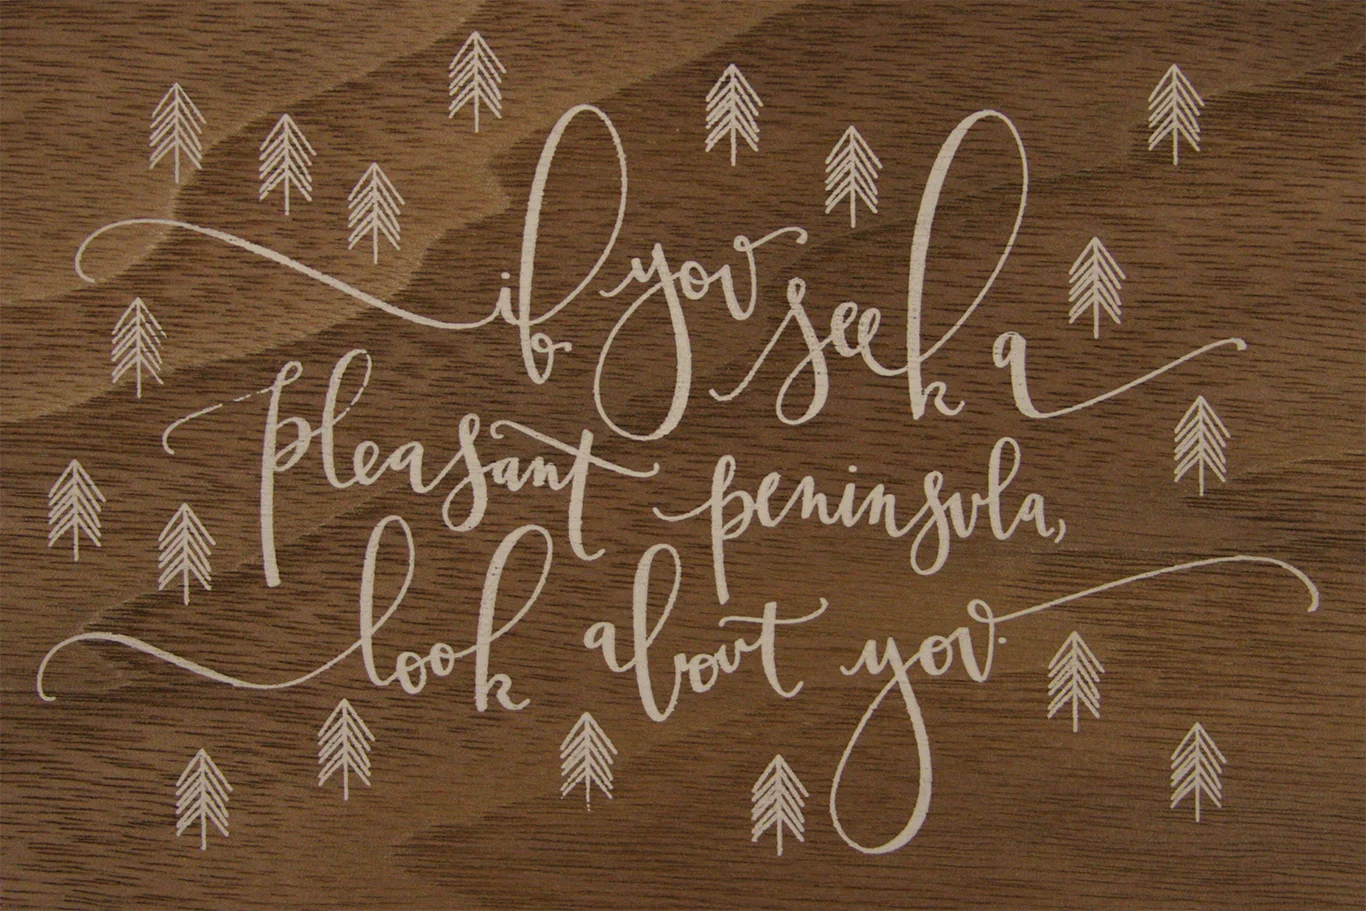 if you seek a
pleasant peninsula,
look about you.